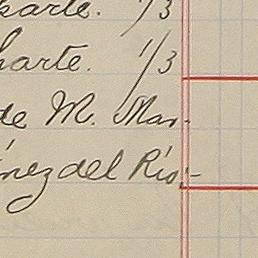 parte. 1/3
parte. 1/3
de M. Mar-
ínez del Río.-